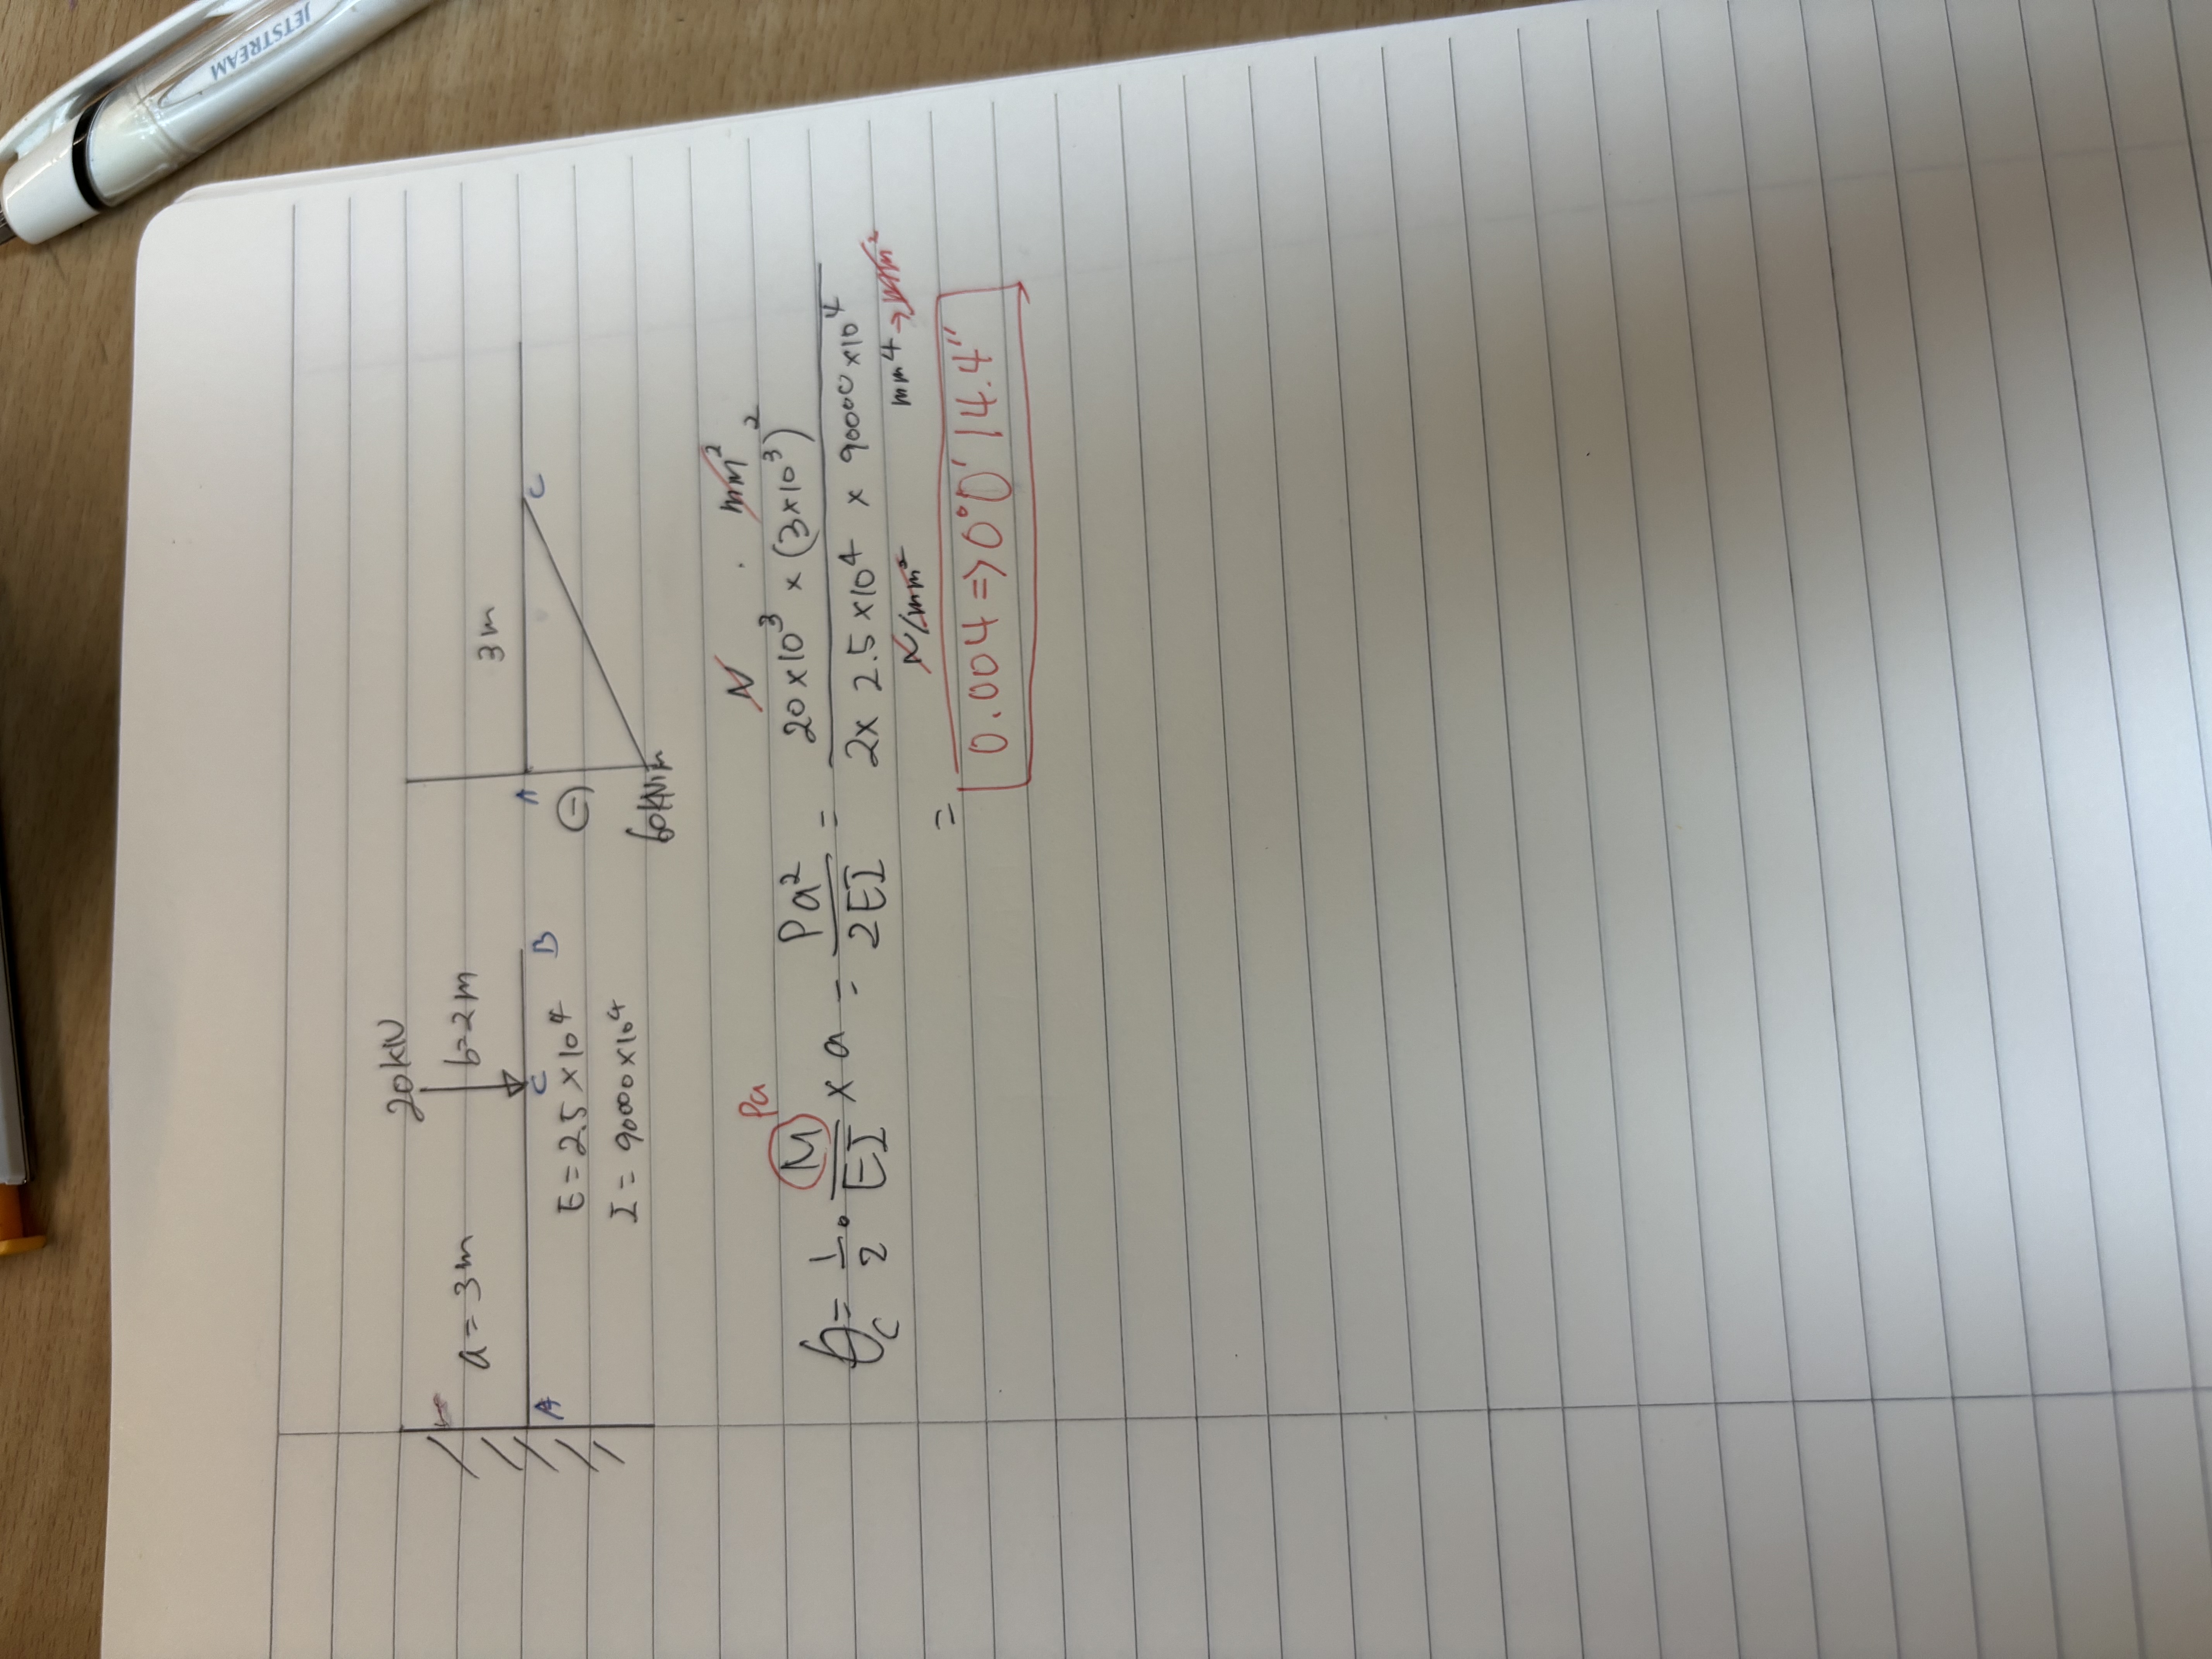 JETSTREAM
20kN
a=3m b=2m 3m
A C B A C
E=2.5×10⁴ ⊖
I=90000×10⁴ 60kN·m
Pa N · mm²
θc = 1/2 · M/EI × a = Pa²/2EI = 20×10³ × (3×10³)² / 2× 2.5×10⁴ × 90000×10⁴
N/mm² mm⁴→mm²
= 0.004 => 0° 0' 14.4"